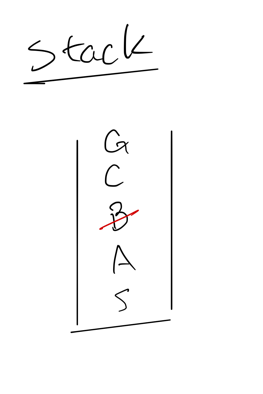 Stack
G
C
B
A
S